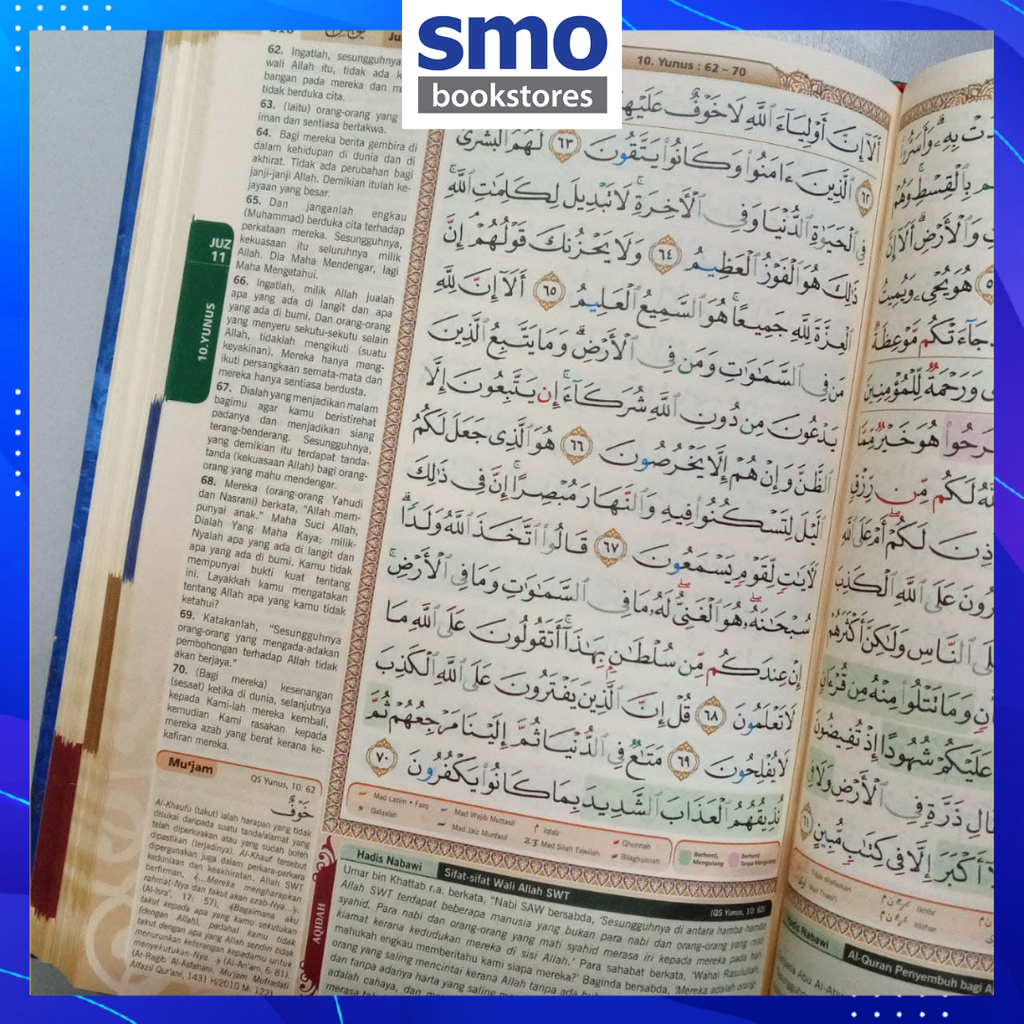 smo
bookstores
10. Yunus : 62 – 70
62. Ingatlah, sesungguhnya
wali Allah itu, tidak ada
bangan pada mereka dan
tidak berduka cita.
63. (Iaitu) orang-orang yang
iman dan sentiasa bertakwa.
64. Bagi mereka berita gembira di
dalam kehidupan di dunia dan di
akhirat. Tidak ada perubahan bagi
janji-janji Allah. Demikian itulah ke-
jayaan yang besar.
65. Dan janganlah engkau
(Muhammad) berduka cita terhadap
perkataan mereka. Sesungguhnya,
kekuasaan itu seluruhnya milik
Allah. Dia Maha Mendengar, lagi
Maha Mengetahui.
66. Ingatlah, milik Allah jualah
apa yang ada di langit dan apa
yang ada di bumi. Dan orang-orang
yang menyeru sekutu-sekutu selain
Allah, tidaklah mengikuti (suatu
keyakinan). Mereka hanya meng-
ikuti persangkaan semata-mata dan
mereka hanya sentiasa berdusta.
67. Dialah yang menjadikan malam
bagimu agar kamu beristirehat
padanya dan menjadikan siang
terang-benderang. Sesungguhnya,
yang demikian itu terdapat tanda-
tanda (kekuasaan Allah) bagi orang-
orang yang mahu mendengar.
68. Mereka (orang-orang Yahudi
dan Nasrani) berkata, “Allah mem-
punyai anak.” Maha Suci Allah,
Dialah Yang Maha Kaya; milik-
Nyalah apa yang ada di langit dan
apa yang ada di bumi. Kamu tidak
mempunyai bukti kuat tentang
ini. Layakkah kamu mengatakan
tentang Allah apa yang kamu tidak
ketahui?
69. Katakanlah, “Sesungguhnya
orang-orang yang mengada-adakan
pembohongan terhadap Allah tidak
akan berjaya.”
70. (Bagi mereka) kesenangan
(sesaat) ketika di dunia, selanjutnya
kepada Kami-lah mereka kembali,
kemudian Kami rasakan kepada
mereka azab yang berat kerana ke-
kafiran mereka.
JUZ
11
10.YUNUS
أَلَآ إِنَّ أَوْلِيَآءَ ٱللَّهِ لَا خَوْفٌ عَلَيْهِ
٦٢ ٱلَّذِينَ ءَامَنُوا۟ وَكَانُوا۟ يَتَّقُونَ ٦٣ لَهُمُ ٱلْبُشْرَىٰ
فِى ٱلْحَيَوٰةِ ٱلدُّنْيَا وَفِى ٱلْءَاخِرَةِ ۚ لَا تَبْدِيلَ لِكَلِمَٰتِ ٱللَّهِ ۚ
ذَٰلِكَ هُوَ ٱلْفَوْزُ ٱلْعَظِيمُ ٦٤ وَلَا يَحْزُنكَ قَوْلُهُمْ ۘ إِنَّ
ٱلْعِزَّةَ لِلَّهِ جَمِيعًا ۚ هُوَ ٱلسَّمِيعُ ٱلْعَلِيمُ ٦٥ أَلَآ إِنَّ لِلَّهِ
مَن فِى ٱلسَّمَٰوَٰتِ وَمَن فِى ٱلْأَرْضِ ۗ وَمَا يَتَّبِعُ ٱلَّذِينَ
يَدْعُونَ مِن دُونِ ٱللَّهِ شُرَكَآءَ ۚ إِن يَتَّبِعُونَ إِلَّا
ٱلظَّنَّ وَإِنْ هُمْ إِلَّا يَخْرُصُونَ ٦٦ هُوَ ٱلَّذِى جَعَلَ لَكُمُ
ٱلَّيْلَ لِتَسْكُنُوا۟ فِيهِ وَٱلنَّهَارَ مُبْصِرًا ۚ إِنَّ فِى ذَٰلِكَ
لَءَايَٰتٍ لِّقَوْمٍ يَسْمَعُونَ ٦٧ قَالُوا۟ ٱتَّخَذَ ٱللَّهُ وَلَدًا ۗ
سُبْحَٰنَهُۥ ۖ هُوَ ٱلْغَنِىُّ ۖ لَهُۥ مَا فِى ٱلسَّمَٰوَٰتِ وَمَا فِى ٱلْأَرْضِ ۚ
إِنْ عِندَكُم مِّن سُلْطَٰنٍۭ بِهَٰذَآ ۚ أَتَقُولُونَ عَلَى ٱللَّهِ مَا
لَا تَعْلَمُونَ ٦٨ قُلْ إِنَّ ٱلَّذِينَ يَفْتَرُونَ عَلَى ٱللَّهِ ٱلْكَذِبَ
لَا يُفْلِحُونَ ٦٩ مَتَٰعٌ فِى ٱلدُّنْيَا ثُمَّ إِلَيْنَا مَرْجِعُهُمْ ثُمَّ
نُذِيقُهُمُ ٱلْعَذَابَ ٱلشَّدِيدَ بِمَا كَانُوا۟ يَكْفُرُونَ ٧٠
Mu‘jam
QS Yunus, 10: 62
خَوْفٌ
Al-Khaufu (takut) ialah harapan yang tidak
disukai daripada suatu tanda/alamat yang
telah diperkirakan atau yang sudah boleh
dipastikan (terjadinya). Al-Khauf tersebut
dipergunakan juga dalam perkara-perkara
keduniaan dan keakhiratan. Allah SWT
berfirman, ﴾...Mereka mengharapkan
rahmat-Nya dan takut akan azab-Nya...﴿
(Al-Isra’, 17: 57), ﴾Bagaimana aku
takut kepada apa yang kamu sekutukan
(dengan Allah), padahal kamu tidak
takut dengan apa yang Allah sendiri tidak
menurunkan keterangan kepadamu untuk
menyekutukan-Nya...﴿ (Al-An‘am, 6: 81).
(Ar-Ragib Al-Asfahani, Mu‘jam Mufradati
Alfazil Qur’ani, 1431 H/2010 M: 122)
Mad Lazim • Farq
Mad Wajib Muttasil
Iqlab
Ghunnah
Qalqalah
Mad Jaiz Munfasil
Mad Silah Tawilah
Bilaghunnah
Berhenti,
Mengulang
Berhenti
Tanpa Mengulang
AQIDAH
Hadis Nabawi
Sifat-sifat Wali Allah SWT
(QS Yunus, 10: 62)
Umar bin Khattab r.a. berkata, “Nabi SAW bersabda, ‘Sesungguhnya di antara hamba-hamba
Allah SWT terdapat beberapa manusia yang bukan para nabi dan orang-orang yang mati
syahid. Para nabi dan orang-orang yang mati syahid merasa iri kepada mereka pada hari
kiamat kerana kedudukan mereka di sisi Allah.’ Para sahabat berkata, ‘Wahai Rasulullah,
mahukah engkau memberitahu kami siapa mereka?’ Baginda bersabda, ‘Mereka adalah orang-
orang yang saling mencintai kerana Allah tanpa ada
dan tanpa adanya harta yang saling
adalah cahaya, dan
Hadis Nabawi
Al-Quran Penyembuh bagi